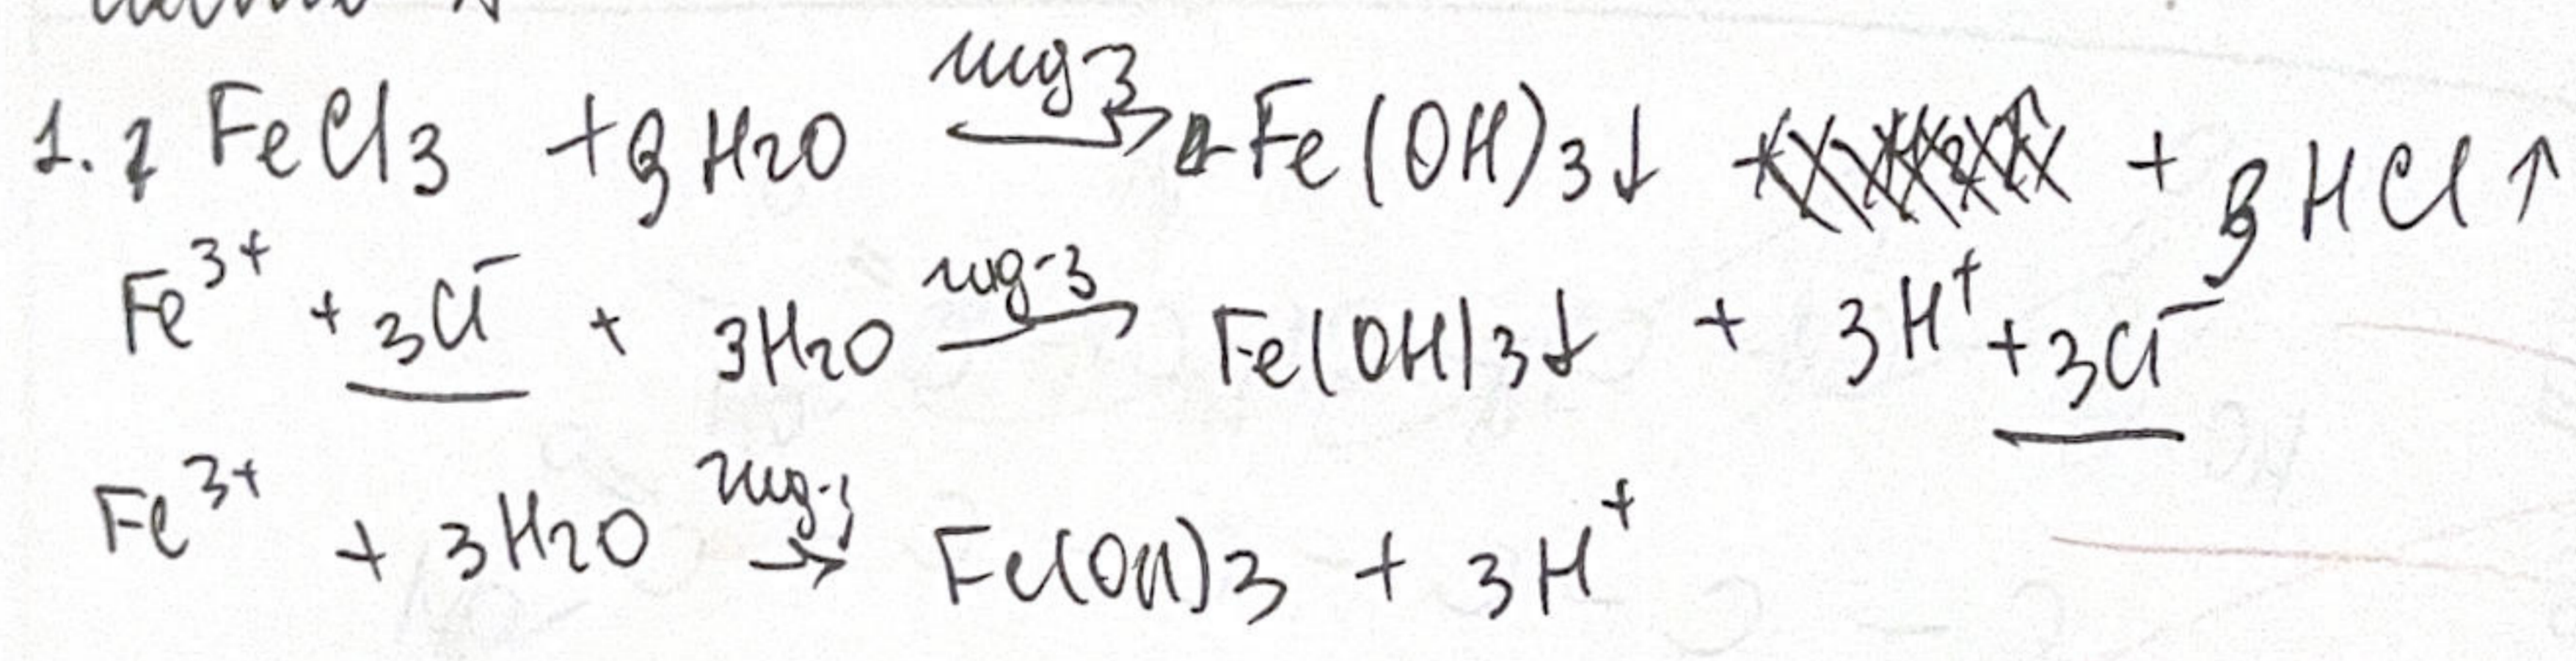 1. FeCl3 + 3H2O гидр-з → Fe(OH)3↓ + 3HCl↑
Fe³⁺ + 3Cl⁻ + 3H2O гидр-з → Fe(OH)3↓ + 3H⁺ + 3Cl⁻
Fe³⁺ + 3H2O → Fe(OH)3 + 3H⁺